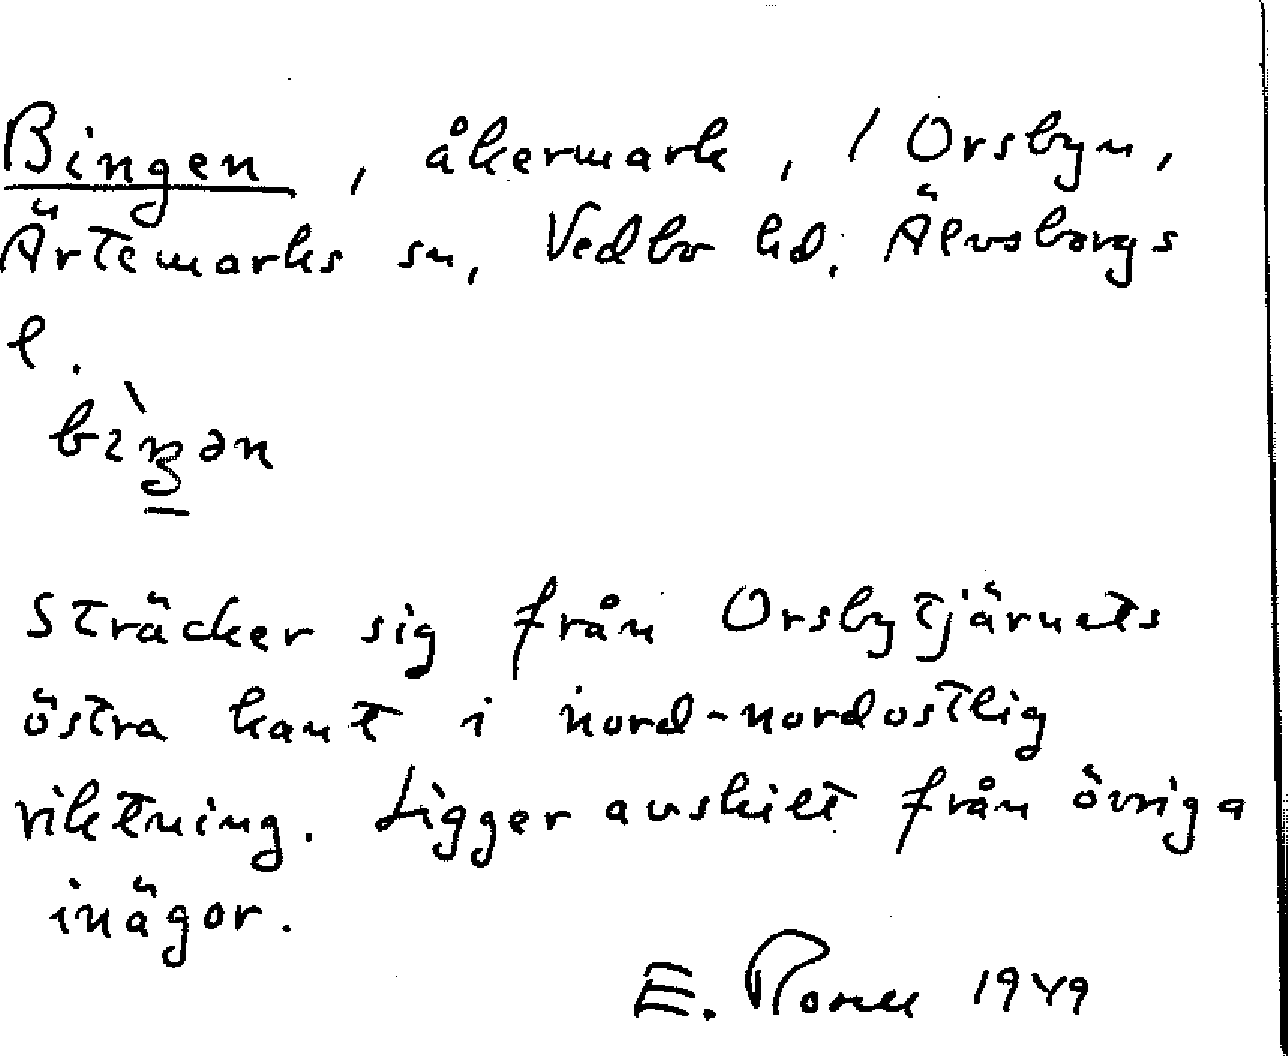 Bingen, åkermark, / Orsbyn,
Ärtemarks sn, Vedbo hd. Älvsborgs
l.
Sträcker sig från Orsbytjärnets
östra kant i nord-nordostlig
riktning. Ligger avskilt från övriga
inägor.
E. 1949